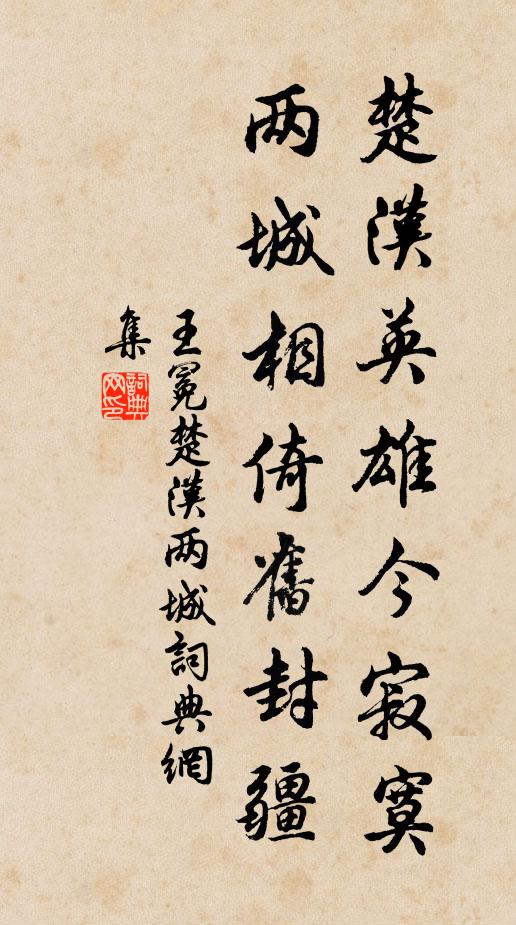 楚漢英雄今寂寞
两城相倚舊封疆
王冕楚漢两城詞典網
集
詞典
网印